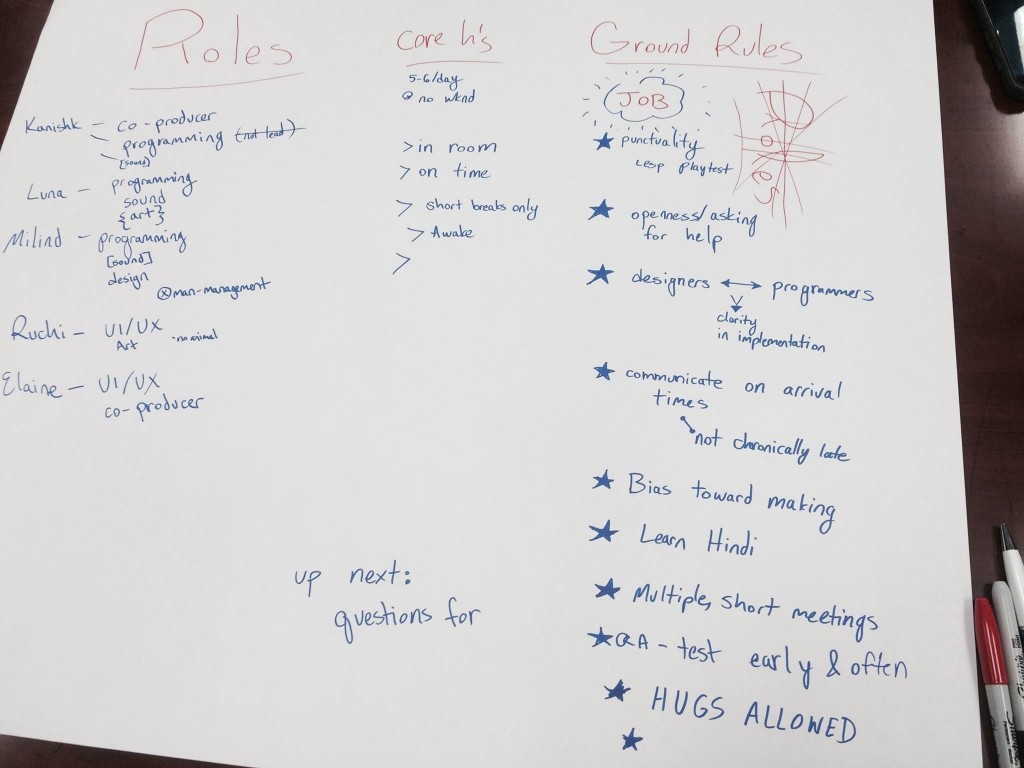 Roles
Kanishk - co-producer
programming (not lead)
[sound]
Luna - programming
sound
{art}
Milind - programming
[sound]
design
ⓧ man-management
Ruchi - UI/UX
Art - no animal
Elaine - UI/UX
co-producer
core h's
5-6/day
no wknd
> in room
> on time
> short breaks only
> Awake
>
Ground Rules
JOB
★ punctuality
↳ esp playtest
★ openness/asking
for help
★ designers ↔ programmers
clarity
in implementation
★ communicate on arrival
times
not chronically late
★ Bias toward making
★ Learn Hindi
★ Multiple, short meetings
★ QA - test early & often
★ HUGS ALLOWED
★
up next:
questions for